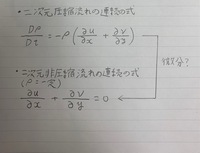 ・二次元圧縮流れの連続の式
Dρ/Dt = -ρ(∂u/∂x + ∂v/∂y)
微分?
・二次元非圧縮流れの連続の式
(ρ=一定)
∂u/∂x + ∂v/∂y = 0